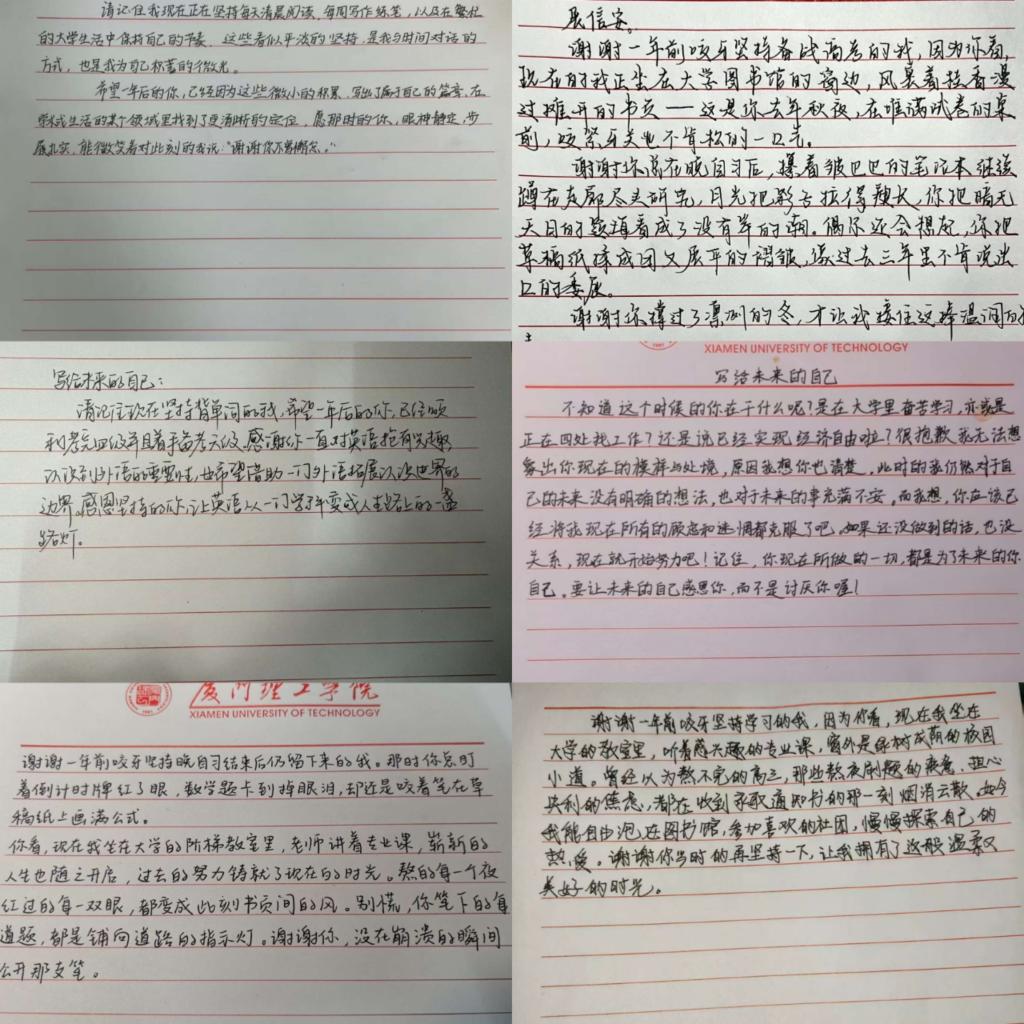 请记住我现在正在坚持每天清晨阅读、每周写作练笔，以及在繁忙
的大学生活中保持自己的节奏。这些看似平淡的坚持，是我与时间对话的
方式，也是我为自己积蓄的微光。
希望一年后的你，已经因为这些微小的积累，写出了属于自己的篇章，在
学术或生活的某个领域里找到了更清晰的定位。愿那时的你，眼神静定，步
履扎实，能微笑着对此刻的我说：“谢谢你不曾懈怠。”
展信安。
谢谢一年前咬牙坚持备战高考的我，因为你看，
现在的我正坐在大学图书馆的窗边，风晃着桂香漫
过摊开的书页——这是你去年秋夜，在堆满试卷的桌
前，咬紧牙关也不肯松的一口气。
谢谢你总在晚自习后，攥着皱巴巴的笔记本继续
蹲在走廊尽头研究，月光把影子拉得颀长，你把暗无
天日的题海看成了没有岸的潮。偶尔还会想起，你把
草稿纸揉成团又展平的褶皱，像过去三年里不肯说出
口的委屈。
谢谢你撑过了凛冽的冬，才让我接住这捧温润的
写给未来的自己：
请记住现在坚持背单词的我，希望一年后的你，已经顺
利考完四级并且着手备考六级，感谢你一直对英语抱有兴趣，
认识到外语的重要性，也希望借助一门外语拓展认识世界的
边界。感恩坚持的你，让英语从一门学科变成人生路上的一盏
路灯。
XIAMEN UNIVERSITY OF TECHNOLOGY
写给未来的自己
不知道这个时候的你在干什么呢？是在大学里奋苦学习，亦或是
正在四处找工作？还是说已经实现经济自由啦？很抱歉我无法想
象出你现在的模样与处境，原因我想你也清楚，此时的我仍然对于自
己的未来没有明确的想法，也对于未来的事充满不安。而我想，你应该已
经将我现在所有的顾虑和迷惘都克服了吧。如果还没做到的话，也没
关系，现在就开始努力吧！记住，你现在所做的一切，都是为了未来的你
自己。要让未来的自己感恩你，而不是讨厌你喔！
厦门理工学院
XIAMEN UNIVERSITY OF TECHNOLOGY
谢谢一年前咬牙坚持晚自习结束后仍留下来的我。那时你总盯
着倒计时牌红了眼，数学题卡到掉眼泪，却还是咬着笔在草
稿纸上画满公式。
你看，现在我坐在大学的阶梯教室里，老师讲着专业课，崭新的
人生也随之开启，过去的努力铸就了现在的时光。熬的每一个夜
红过的每一双眼，都变成此刻书页间的风。别慌，你笔下的每
道题，都是铺向道路的指示灯。谢谢你，没在崩溃的瞬间
公开那支笔。
谢谢一年前咬牙坚持学习的我，因为你看，现在我坐在
大学的教室里，听着感兴趣的专业课，窗外是绿树成荫的校园
小道。曾经以为熬不完的高三，那些熬夜刷题的疲惫、担心
失利的焦虑，都在收到录取通知书的那一刻烟消云散。如今
我能自由泡在图书馆，参加喜欢的社团，慢慢探索自己的
热爱。谢谢你当时的再坚持一下，让我拥有了这般温柔又
美好的时光。